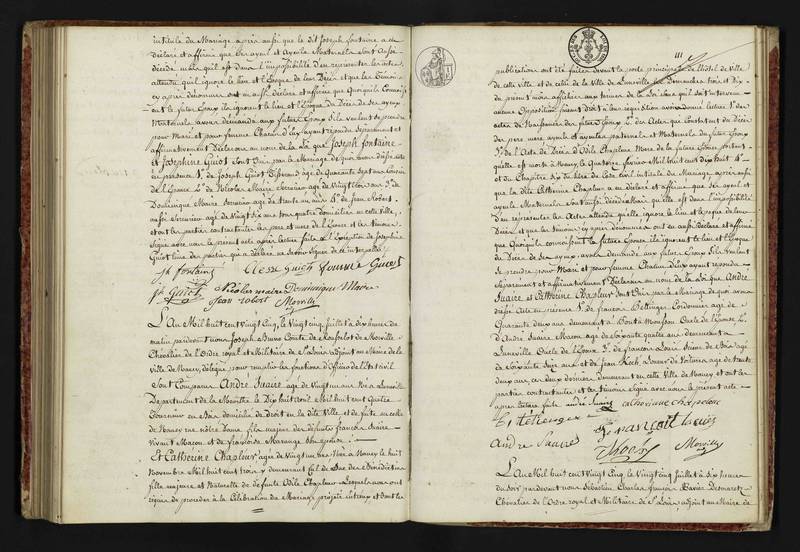 intitulé du Mariage après ainsi que le dit Joseph fontaine a
déclaré et affirmé que ses ayeul et Ayeule Maternels sont aussi
décédés mais qu'il est dans l'impossibilité d'en représenter les actes
attendu qu'il ignore le lieu et l'époque de leur Décès et que les témoins
cy après dénommés ont aussi déclaré et affirmé que quoiqu'ils
le futur Epoux ils ignorent le lieu et l'Epoque du Décès de ses ayeux
Maternels avons demandé aux futurs Epoux s'ils veulent se prendre
pour Mari et pour femme Chacun d'eux ayant répondu séparément et
affirmativement Déclarons au nom de la Loi que Joseph fontaine
et Joséphine Guiot sont Unis par le Mariage de quoi avons dressé acte
en présence 1° de Joseph Guiot âgé de Quarante sept ans
de l'Epouse 2° de Nicolas Maire Serrurier agé de Vingt 3° de
Dominique Maire Serrurier agé de trente un ans 4° de Jean Robert
aussi Serrurier agé de Vingt six ans tous quatre Domiciliés en cette Ville,
et ont les parties contractantes les père et mère de l'Epouse et les témoins
Signé avec nous le présent acte après lecture faite à l'Exception de Joséphine
Guiot l'une des parties qui a déclaré ne savoir signer de ce interpellée
J. fontaine
Guiot
Nicolas maire Dominique Maire
Jean robert Morville
L'An Mil huit cent Vingt Cinq, le Vingt Cinq Juillet à Dix heures du
matin pardevant nous Joseph Bruno Comte de
Chevalier de l'Ordre royal et Militaire de St Louis adjoint au Maire de la
Ville de Nancy, délégué pour remplir les fonctions d'Officier de l'Etat civil
Sont Comparus André Suaire agé de Vingt un ans Né à Lunéville
Département de la Meurthe le Dix huit Mil huit cent Quatre
en Bois Domicilié de droit en la dite Ville et de fait en celle
de Nancy rue nôtre Dame fils majeur des défunts françois Suaire
Vivant Macon et de françoise Marange son épouse
Et Catherine Chapleur agée de Vingt un ans Née à Nancy le huit
Novembre Mil huit cent trois y demeurant Cul de Sac des Bénédictins
fille majeure et Naturelle de défunte Odile Chapleur Lesquels nous ont
requis de procéder à la Célébration du Mariage projeté entr'eux, et dont les
111
publications ont été faites devant la porte principale de l'hôtel de Ville
de cette ville et de celle de la Ville de Lunéville les Dimanches trois et dix
du présent mois affichées aux termes de la Loi
aucune Opposition faisant droit à leur réquisition avons donné lecture 1° des
actes de Naissance des futurs Epoux 2° des Actes qui constatent du Décès
des père mère ayeuls et ayeules paternels et Maternels du futur Epoux
3° de l'Acte de Décès d'Odile Chapleur Mère de la future Epouse portant
qu'elle est morte à Nancy, le Quatorze février Mil huit cent Dix huit 4°
et du Chapitre Six du titre du Code Civil intitulé du Mariage, après ainsi
que la dite Catherine Chapleur a eu déclaré et affirmé que ses ayeul et
ayeule Maternels sont aussi décédés Mais qu'elle est dans l'impossibilité
d'en représenter les Actes attendu qu'elle, ignore, le lieu et l'époque de leur
Décès, et que les témoins cy après dénommés ont eu aussi déclaré et affirmé
que Quoiqu'ils connaissent la future Epouse ils ignorent le lieu et l'Epoque
de Décès de ses ayeux, avons demandé aux futurs Epoux s'ils veulent
se prendre pour Mari et pour femme Chacun d'eux ayant répondu
Séparément et affirmativement Déclarons au nom de la Loi que André
Suaire et Catherine Chapleur sont Unis par le Mariage de quoi avons
dressé acte en présence 1° de françois Bettinger Cordonnier agé de
Quarante deux ans demeurant à Pont à Mousson Oncle de l'Epouse 2°
d'André Suaire Macon agé de soixante quatre ans demeurant à
Lunéville Oncle de l'Epoux 3° de françois Louis de Bois agé
de soixante Dix ans et de Jean Koch, de Voitures, agé de trente
deux ans, ces deux derniers demeurant en cette Ville de Nancy et ont les
parties contractantes et les témoins signé avec nous le présent acte
après lecture faite andré Suaire catherinne chapleur
françois
André Suaire Koch Morville
L'An Mil huit cent Vingt Cinq, le Vingt cinq Juillet à six heures
du soir pardevant nous Sébastien Charles françois Xavier Desmaretz
Chevalier de l'Ordre royal et Militaire de St Louis, adjoint au Maire de